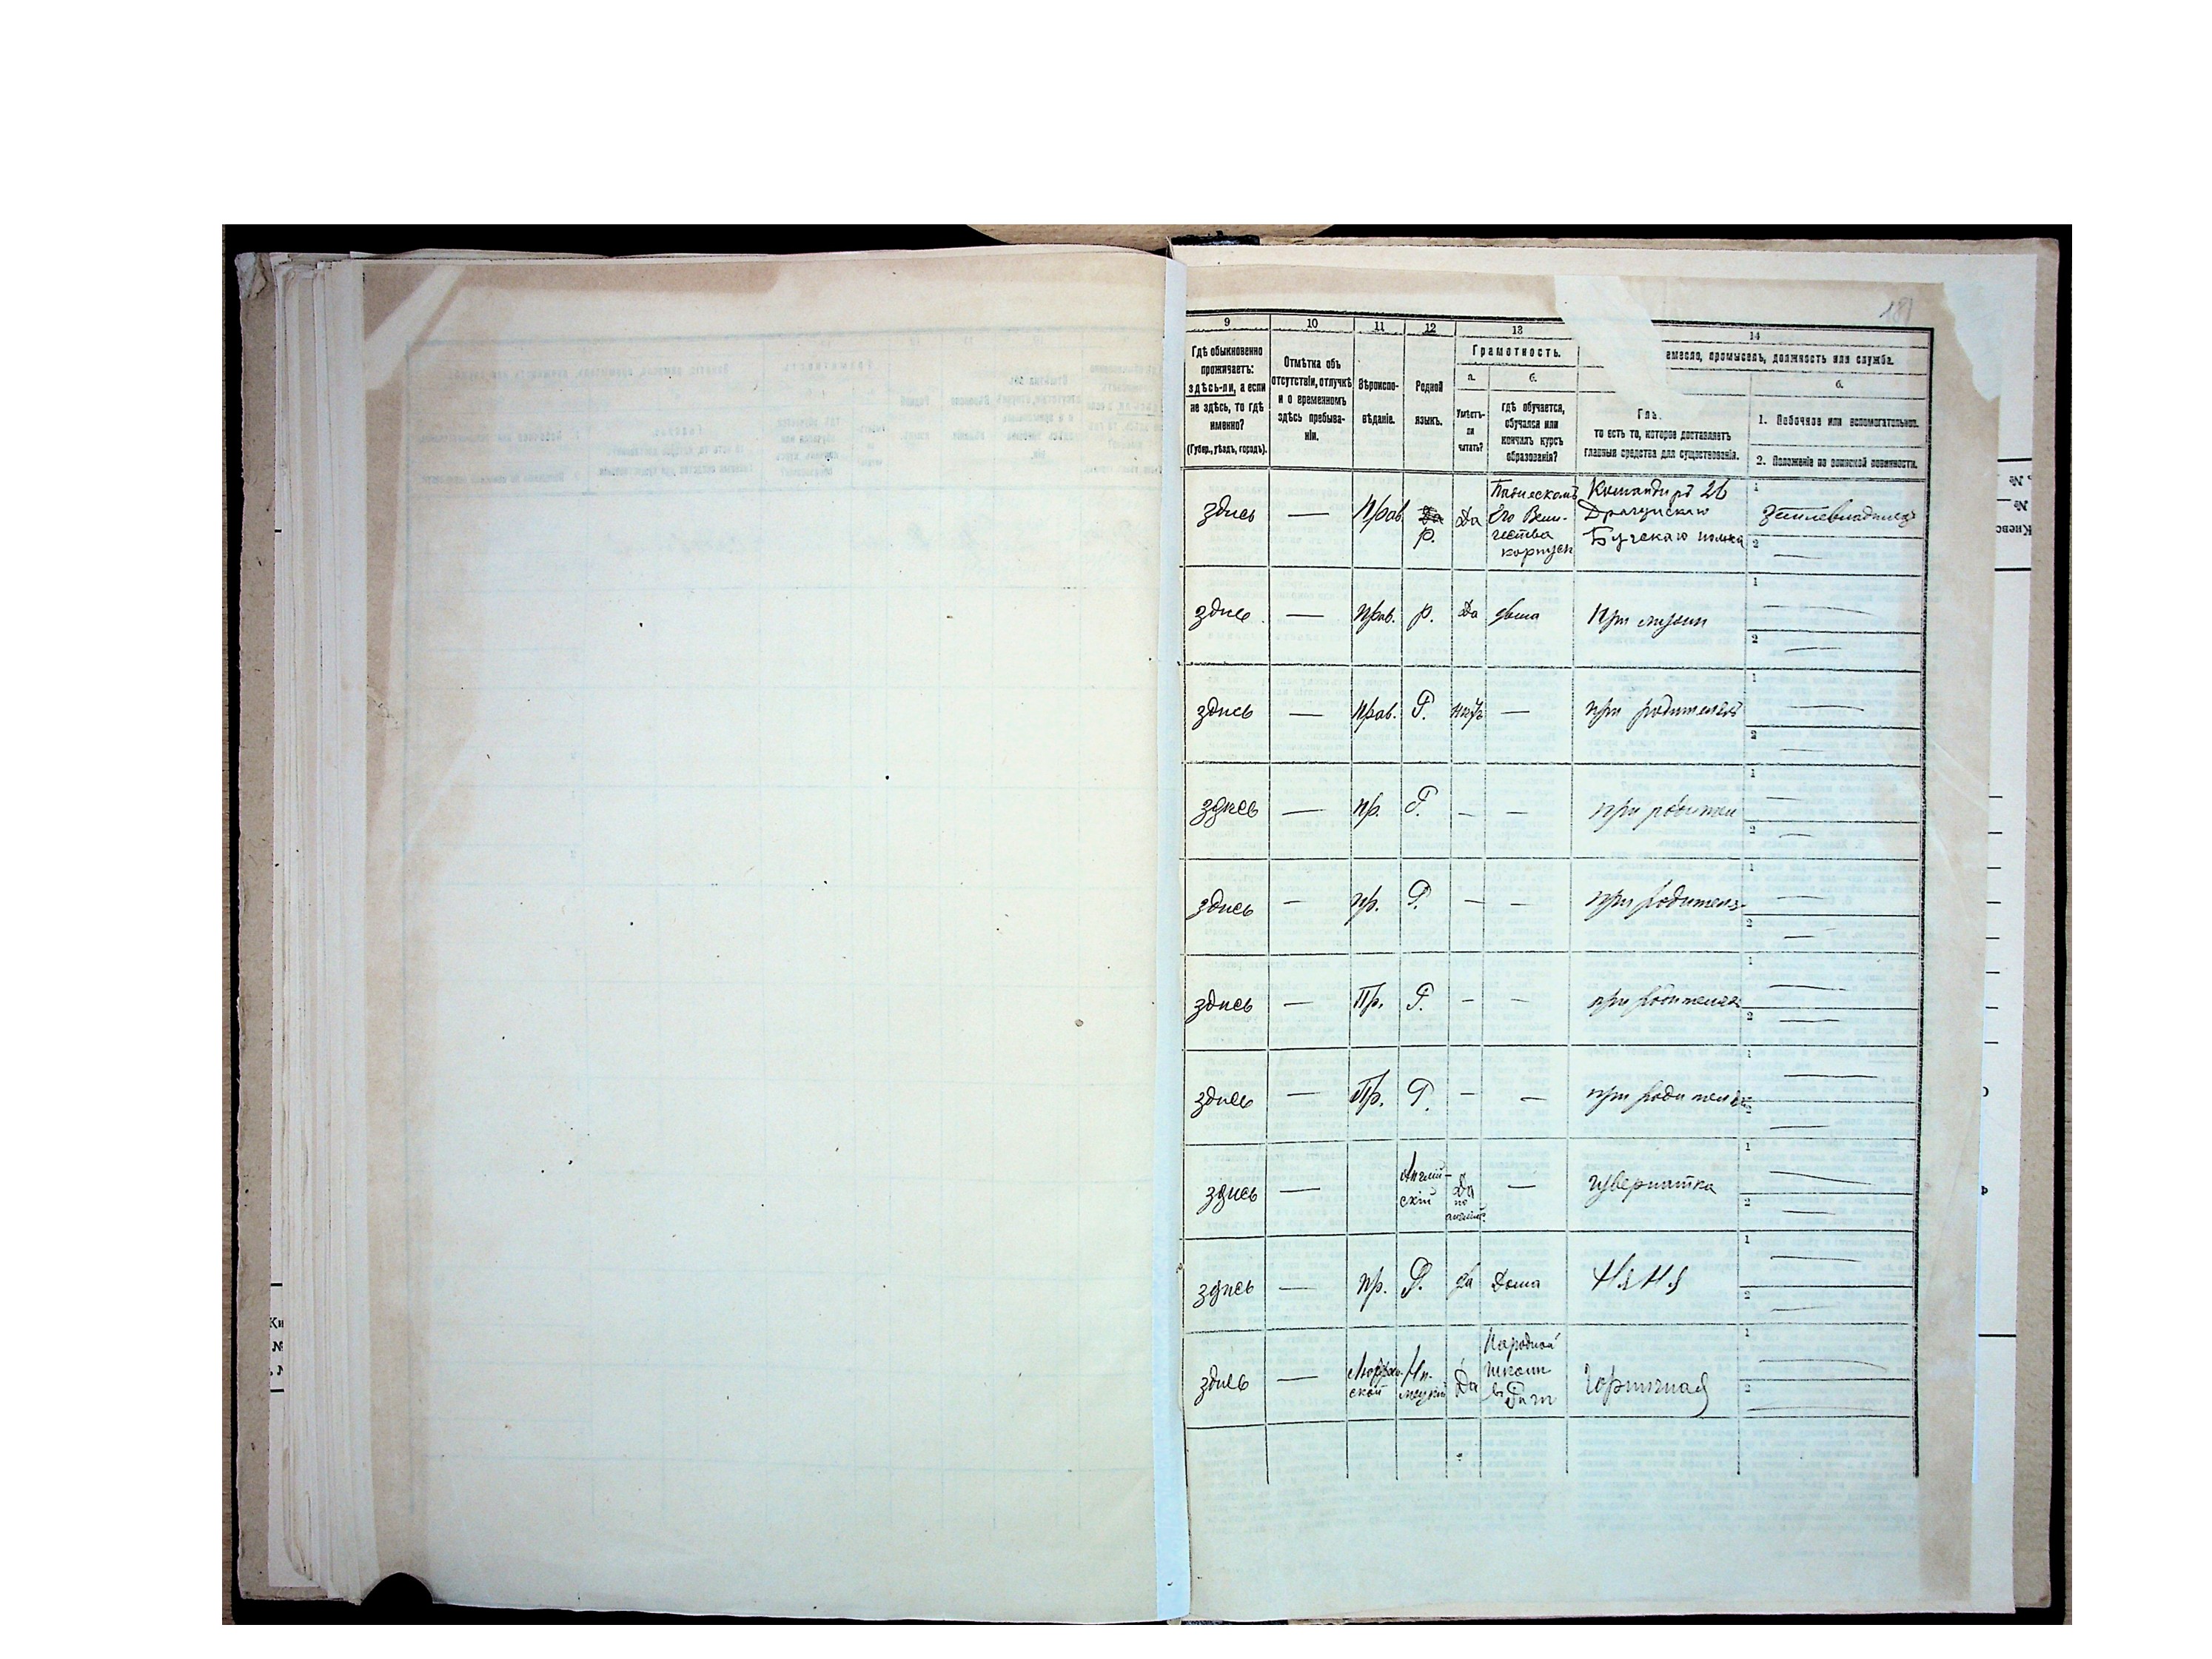 181
9 10 11 12 13 14
Гдѣ обыкновенно
проживаетъ:
здѣсь-ли, а если
не здѣсь, то гдѣ
именно?
(Губер., уѣздъ, городъ).
Отмѣтка объ
отсутствіи, отлучкѣ
и о временномъ
здѣсь пребыва-
ніи.
Вѣроиспо-
вѣданіе.
Родной
языкъ.
Грамотность.
а.
Умѣетъ-
ли
читать?
б.
гдѣ обучается,
обучался или
кончилъ курсъ
образованія?
емесло, промыселъ, должность или служба.
Гла
то есть то, которое доставляетъ
главныя средства для существованія.
б.
1. Побочное или вспомогательное.
2. Положеніе по воинской повинности.
здись — Прав Да р. Да
Пажескомъ
Его Вели-
чества
корпусн
Командиръ 26
Драгунскаго
Бугскаго полка
1 Землевладелецъ
2 —
здис — Прав. р. Да дома При мужи
1 —
2 —
здись — Прав. Р. нѣтъ — при родителяхъ
1 —
2 —
здись — пр. Р. — — при родител
1 —
2 —
здись — пр. Р. — — при родителя
1 —
2 —
здись — Пр. Р. — — при родителях
1 —
2 —
здись — Пр. Р. — — при родителях
1 —
2 —
здись — Англій-
скій
Да
по
англій.
— гувернатка
1 —
2 —
здись — пр. Р. да Дома Няня
1 —
2 —
здись — Нѣ-
мецкій
Да
Народной
школи
в
Горничная
1 —
2 —